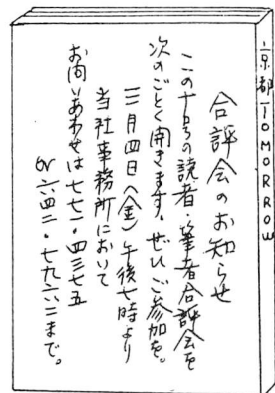 京都TOMORROW
合評会のお知らせ
この十号の読者・筆者合評会を
次のごとく開きます。ぜひご参加を。
三月四日(金)午後七時より
当社事務所において
お問いあわせは七七一・四三七五
or 六四二・七九六二まで。